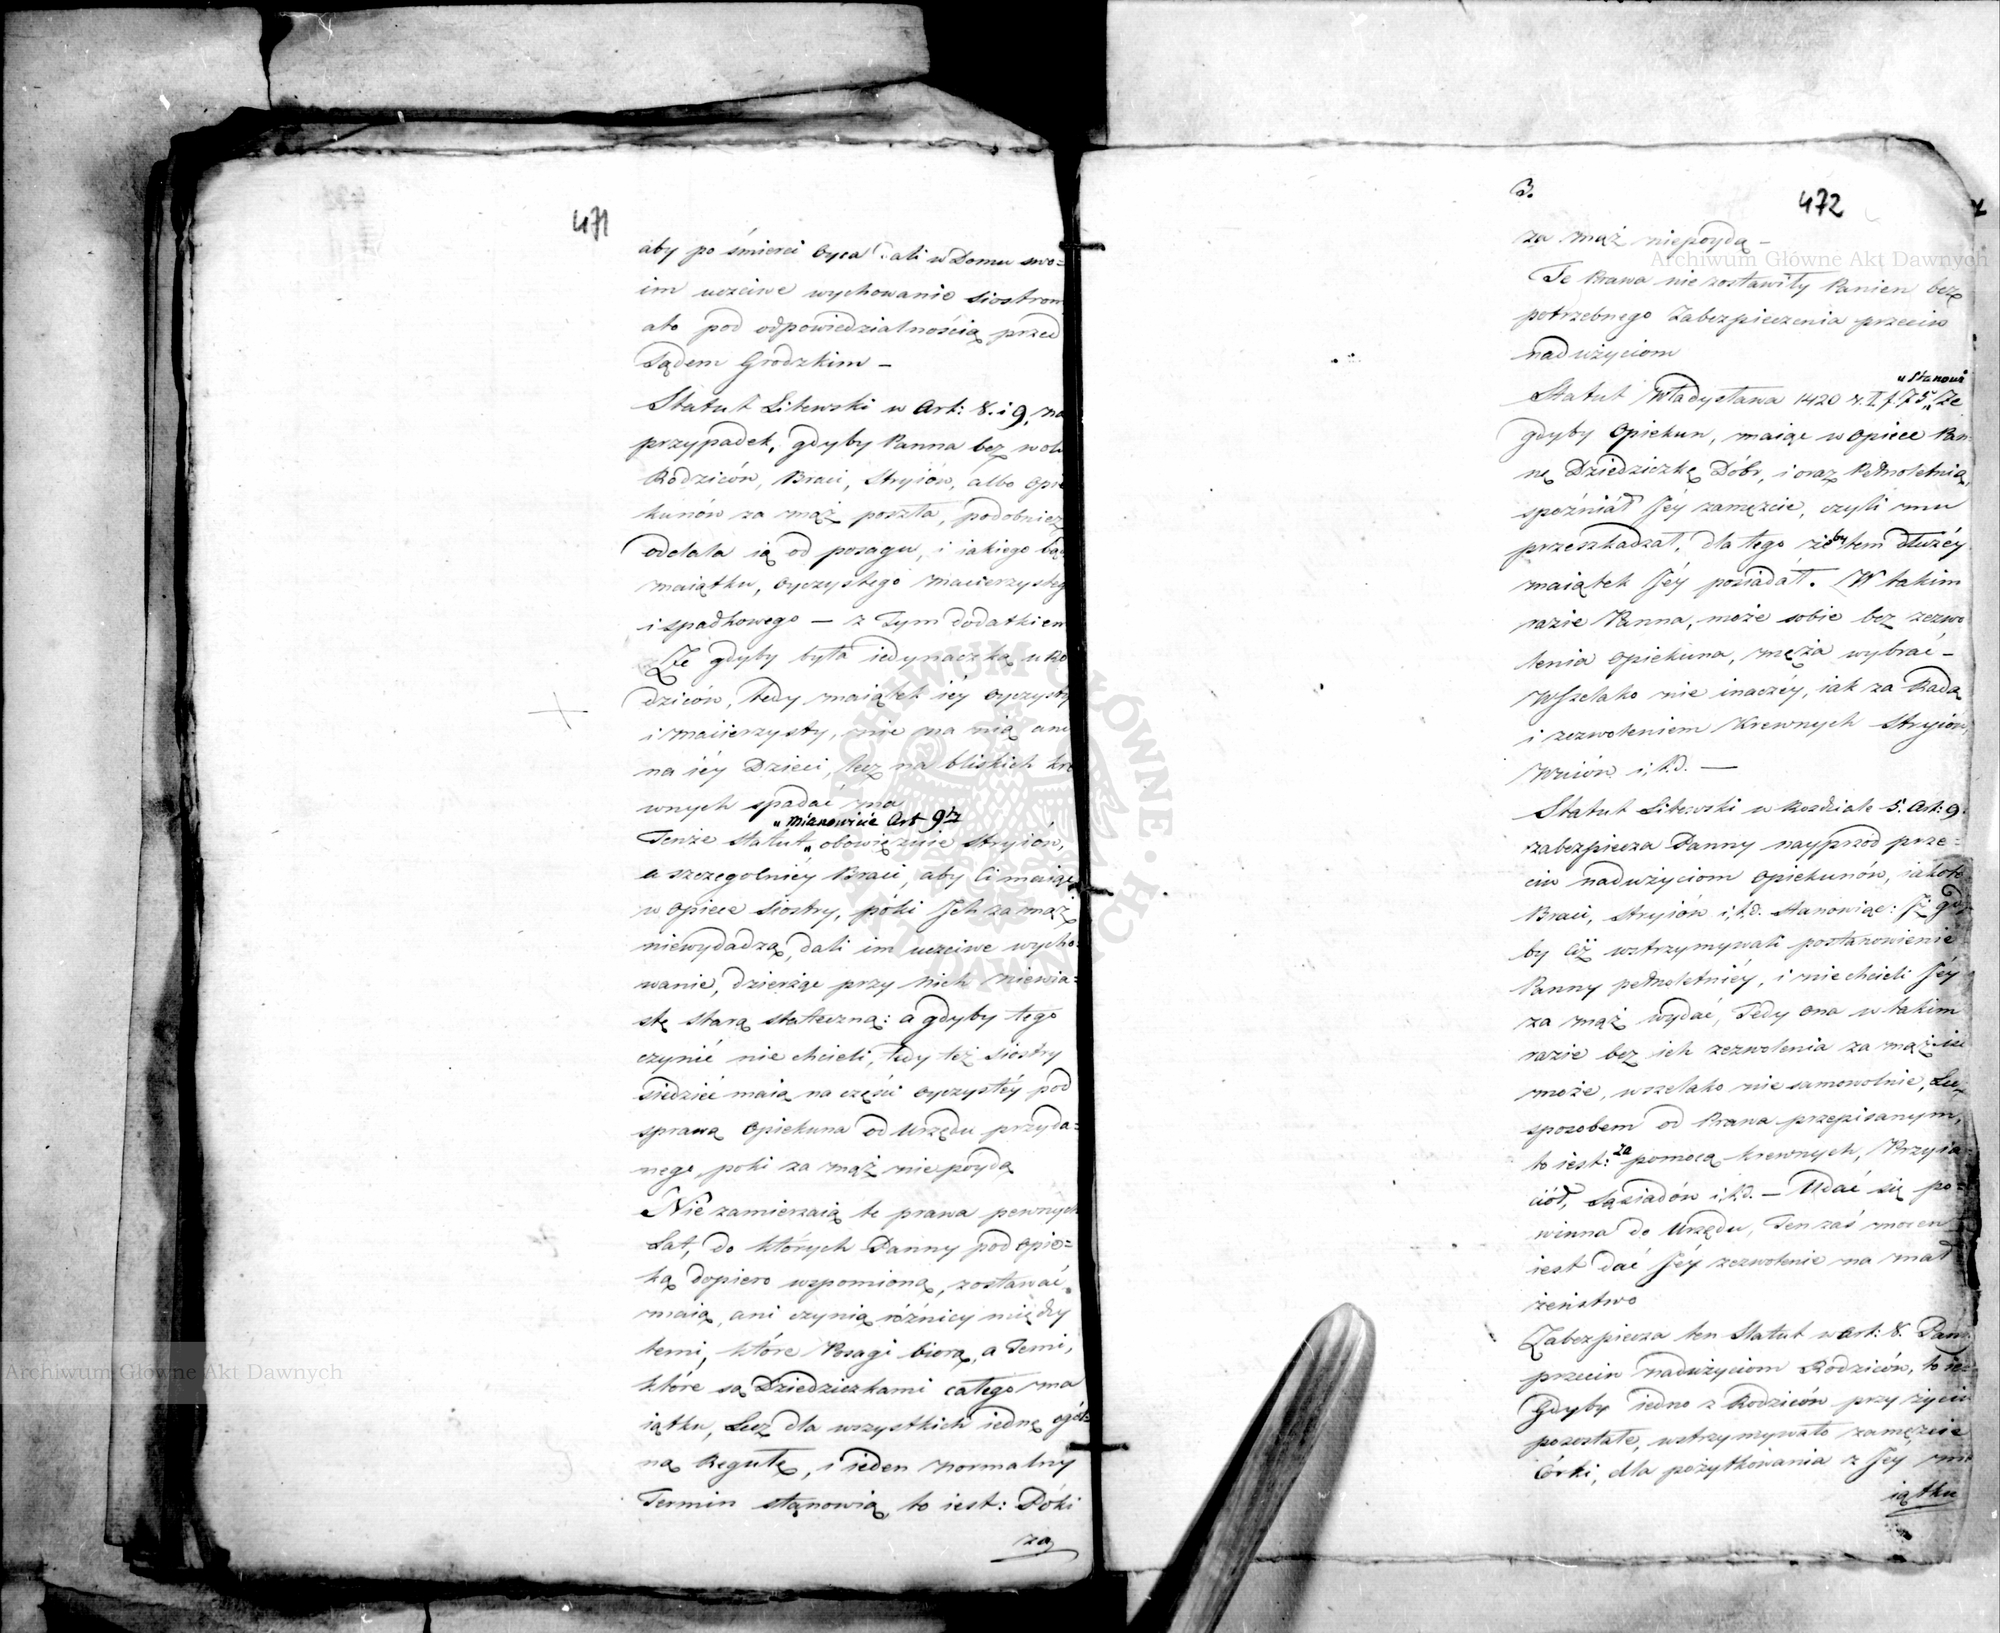 471
aby po śmierci Oyca dali w Domu swo=
im uczciwe wychowanie siostrom
ato pod odpowiedzialnością przed
Sądem Grodzkim –
Statut Litewski w Art: 8. i 9, na
przypadek, gdyby Panna bez woli
Rodziców, Braci, Stryiów, albo Opie
kunów za mąż poszła, podobnież
oddala ią od posagu, i iakiego bądź
maiątku, oyczystego macierzysteg
i spadkowego — z Tym dodatkiem
Że gdyby była iedynaczką u Ro
dziców, tedy maiątek iéy oyczysty
i macierzysty, nie na nią ani
na iéy Dzieci, lecz na bliskich kre
wnych spadać ma
„ mianowicie Art 9ty
Tenże Statut „ obowięznie Stryiów,
a szczególniéy Braci, aby Ci maiąc
w opiece siostry, póki Ich za mąż
niewydadzą, dali im uczciwe wycho=
wanie, dzierżąc przy nich niewia=
stę starą stateczną: a gdyby tego
czynić nie chcieli, tedy też siostry
siedzieć maią na części oyczystéy pod
sprawą opiekuna od Urzędu przyda=
nego, poki za mąż nie poydą
Nie zamierzaią te prawa pewnych
Lat, do których Panny pod opie=
ką dopiero wspomioną, zostawać
maią, ani czynią różnicy między
temi, które Posagi biorą, a Temi,
które są Dziedziczkami całego ma
iątku, Lecz dla wszystkich iednę ogól=
ną Regułę, i ieden normalny
Termin stąnowią, to iest: Póki
za
3.
472
za mąż niepoydą –
Te Prawa niezostawiły Panien bez
potrzebnego Zabezpieczenia przeciw
nadużyciom
„ Stanowi
Statut Władysława 1420 r. I. f. 75 „ Że
gdyby Opiekun, maiąc w Opiece Pan=
nę Dziedziczkę Dóbr, i oraz Pełnoletnią,
spóźniał Jéy zamęzcie, czyli mu
przeszkadzał, dla tego żeby tem dłużéy
maiątek Jéy posiadał. W takim
razie Panna, może sobie bez zezwo
lenia opiekuna, męża wybrać –
Wszelako nie inaczéy, iak za Radą
i zezwoleniem Krewnych Stryiów,
Wuiów i, t.d. —
Statut Litewski w Rozdziale 5. Art: 9.
zabezpiecza Panny nayprzód prze=
ciw nadużyciom opiekunów, iakoto
Braci, Stryiów i, t.d. stanowiąc: Jż gdy
by Ciż wstrzymywali postanowienie
Panny pełnoletniéy, i niechcieli Jéy
za mąż wydać, Tedy ona w takim
razie bez ich zezwolenia za mąż iść
może, wszelako nie samowolnie, Lecz
sposobem od Prawa przepisanym,
to iest: za pomocą krewnych, Przyia=
ciół, Sąsiadów i, t.d. – Udać się po=
winna do Urzędu, Ten zaś mocen
iest dać Jéy zezwolenie na mał
żeństwo
Zabezpiecza ten Statut w Art: 8. Pan
przeciw nadużyciom Rodziców, to iest
Gdyby iedno z Rodziców przy życiu
pozostałe, wstrzymywało zamęzcie
Córki, dla pożytkowania z Jey ma
iątku
Archiwum Główne Akt Dawnych
Archiwum Główne Akt Dawnych
ARCHIWUM GŁÓWNE AKT DAWNYCH